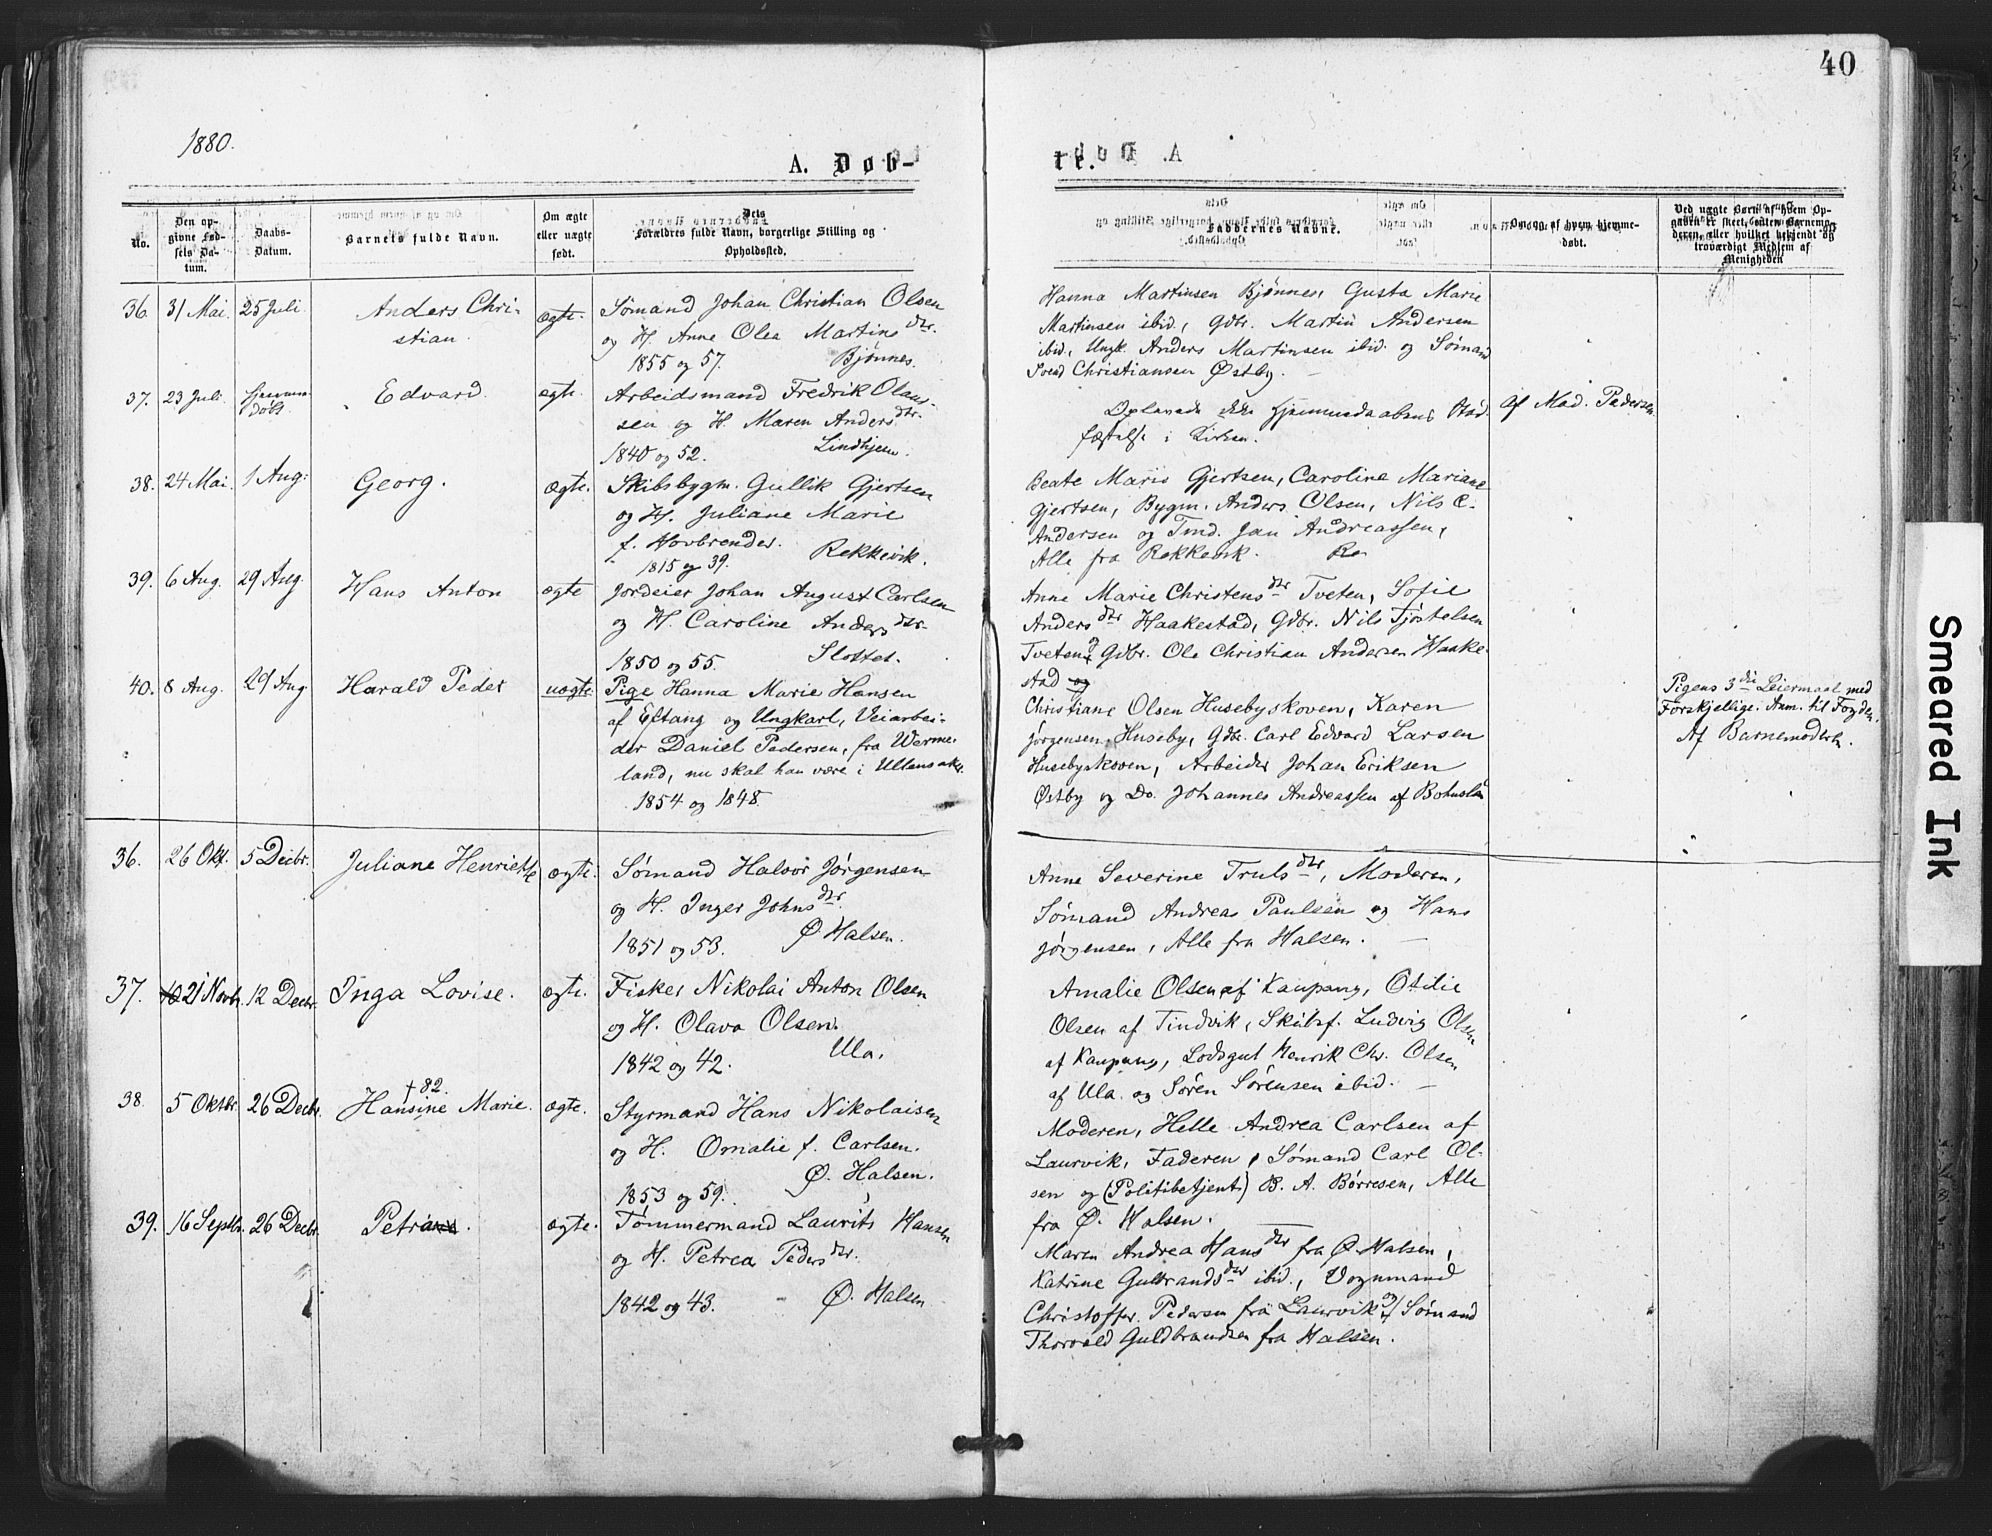 40
1880.
A. Døb-
te.
No.
Den op-
givne Fød-
sels Da-
tum.
Daabs-
Datum.
Barnets fulde Navn.
Om ægte
eller uægte
født.
Dets
Forældres fulde Navn, borgerlige Stilling og
Opholdssted.
Faddernes Navne.
Om og af hvem hjemme-
døbt.
Ved uægte Børn af hvem Op-
gaven er skeet, enten Barnemo-
deren, eller hvilket bekjendt og
troværdigt Medlem af
Menigheden
36. 31 Mai. 25 Juli. Anders Chri-
stian.
ægte.
Sømand Johan Christian Olsen
og H. Anne Olea Martins dtr.
1855 og 57. Bjønnes.
Hanna Martinsen Bjønnes, Gusta Marie
Martinsen ibid., Gdbr. Martin Andersen
ibid., Ungk. Anders Martinsen ibid. og Sømand
Svend Christiansen Østby.
37. 23 Juli. hjemme-
døbt.
Edvard.
ægte.
Arbeidsmand Fredrik Olaus-
sen og H. Maren Anders dtr.
1840 og 52. Lindhjem.
Oplevede ikke hjemmedaabens Stad-
fæstelse i Kirken.
Af Mad. Pedersen.
38. 24 Mai. 1 Aug: Georg. ægte.
Skibsbygm. Gullik Gjertsen
og H. Juliane Marie
f. Hovbrender. Rekkevik.
1815 og 39.
Beate Marie Gjertsen, Caroline Mariane
Gjertsen, Bygm. Anders Olsen, Nils C.
Andersen og Tmd. Jan Andreassen,
Alle fra Rekkevik.
39. 6 Aug. 29 Aug. Hans Anton ægte
Jordeier Johan August Carlsen
og H. Caroline Anders dtr.
1850 og 55. Slottet.
Anne Marie Christens dtr Tveten, Sofie
Anders dtr Haakestad, Gdbr. Nils Tjøstelsen
Tveten og Gdbr. Ole Christian Andersen Haake-
stad og
40. 8 Aug. 29 Aug Harald Peder uægte.
Pige Hanna Marie Hansen
af Eftang og Ungkarl, Veiarbei-
der Daniel Pedersen, fra Werme-
land, nu skal han være i Ullensaker.
1854 og 1848.
Christiane Olsen Husebyskoven, Karen
Jørgensen Huseby, Gdbr. Carl Edvard Larsen
Husebyskoven, Arbeider Johan Eriksen
Østby og Do. Johannes Andreassen af Bohuslän
Pigens 3die Leiermaal med
Forskjellige. Anm. til Fogden.
Af Barnemoderen.
36. 26 Okt. 5 Decbr. Juliane Henriette ægte.
Sømand Halvor Jørgensen
og H. Inger Johns dtr.
1851 og 53. Ø. Halsen.
Anne Severine Truls dtr, Moderen,
Sømand Andreas Paulsen og Hans
Jørgensen, Alle fra Halsen.
37. 10 21 Novbr. 12 Decbr. Inga Lovise. ægte.
Fisker Nikolai Anton Olsen
og H. Olava Olsen.
1842 og 42. Ula.
Amalie Olsen af Kaupang, Otilie
Olsen af Tindvik, Skibsf. Ludvig Olsen
af Kaupang, Lodsgut Henrik Chr. Olsen
af Ula og Søren Sørensen ibid.
38. 5 Oktbr. 26 Decbr. † 82.
Hansine Marie. ægte.
Styrmand Hans Nikolaisen
og H. Omalie f. Carlsen.
1853 og 59. Ø. Halsen.
Moderen, Helle Andrea Carlsen af
Laurvik, Faderen, Sømand Carl Ol-
sen og (Politibetjent) B. A. Børresen, Alle
fra Ø. Halsen.
39. 16 Septbr. 26 Decbr. ægte.
Tømmermand Laurits Hansen
og H. Petrea Peders dtr.
1842 og 43. Ø. Halsen
Maren Andrea Hans dtr fra Ø. Halsen,
Katrine Gulbrands dtr ibid., Vognmand
Christoffer Pedersen fra Laurvik og Sømand
Thorvald Guldbrandsen fra Halsen.
Smeared Ink